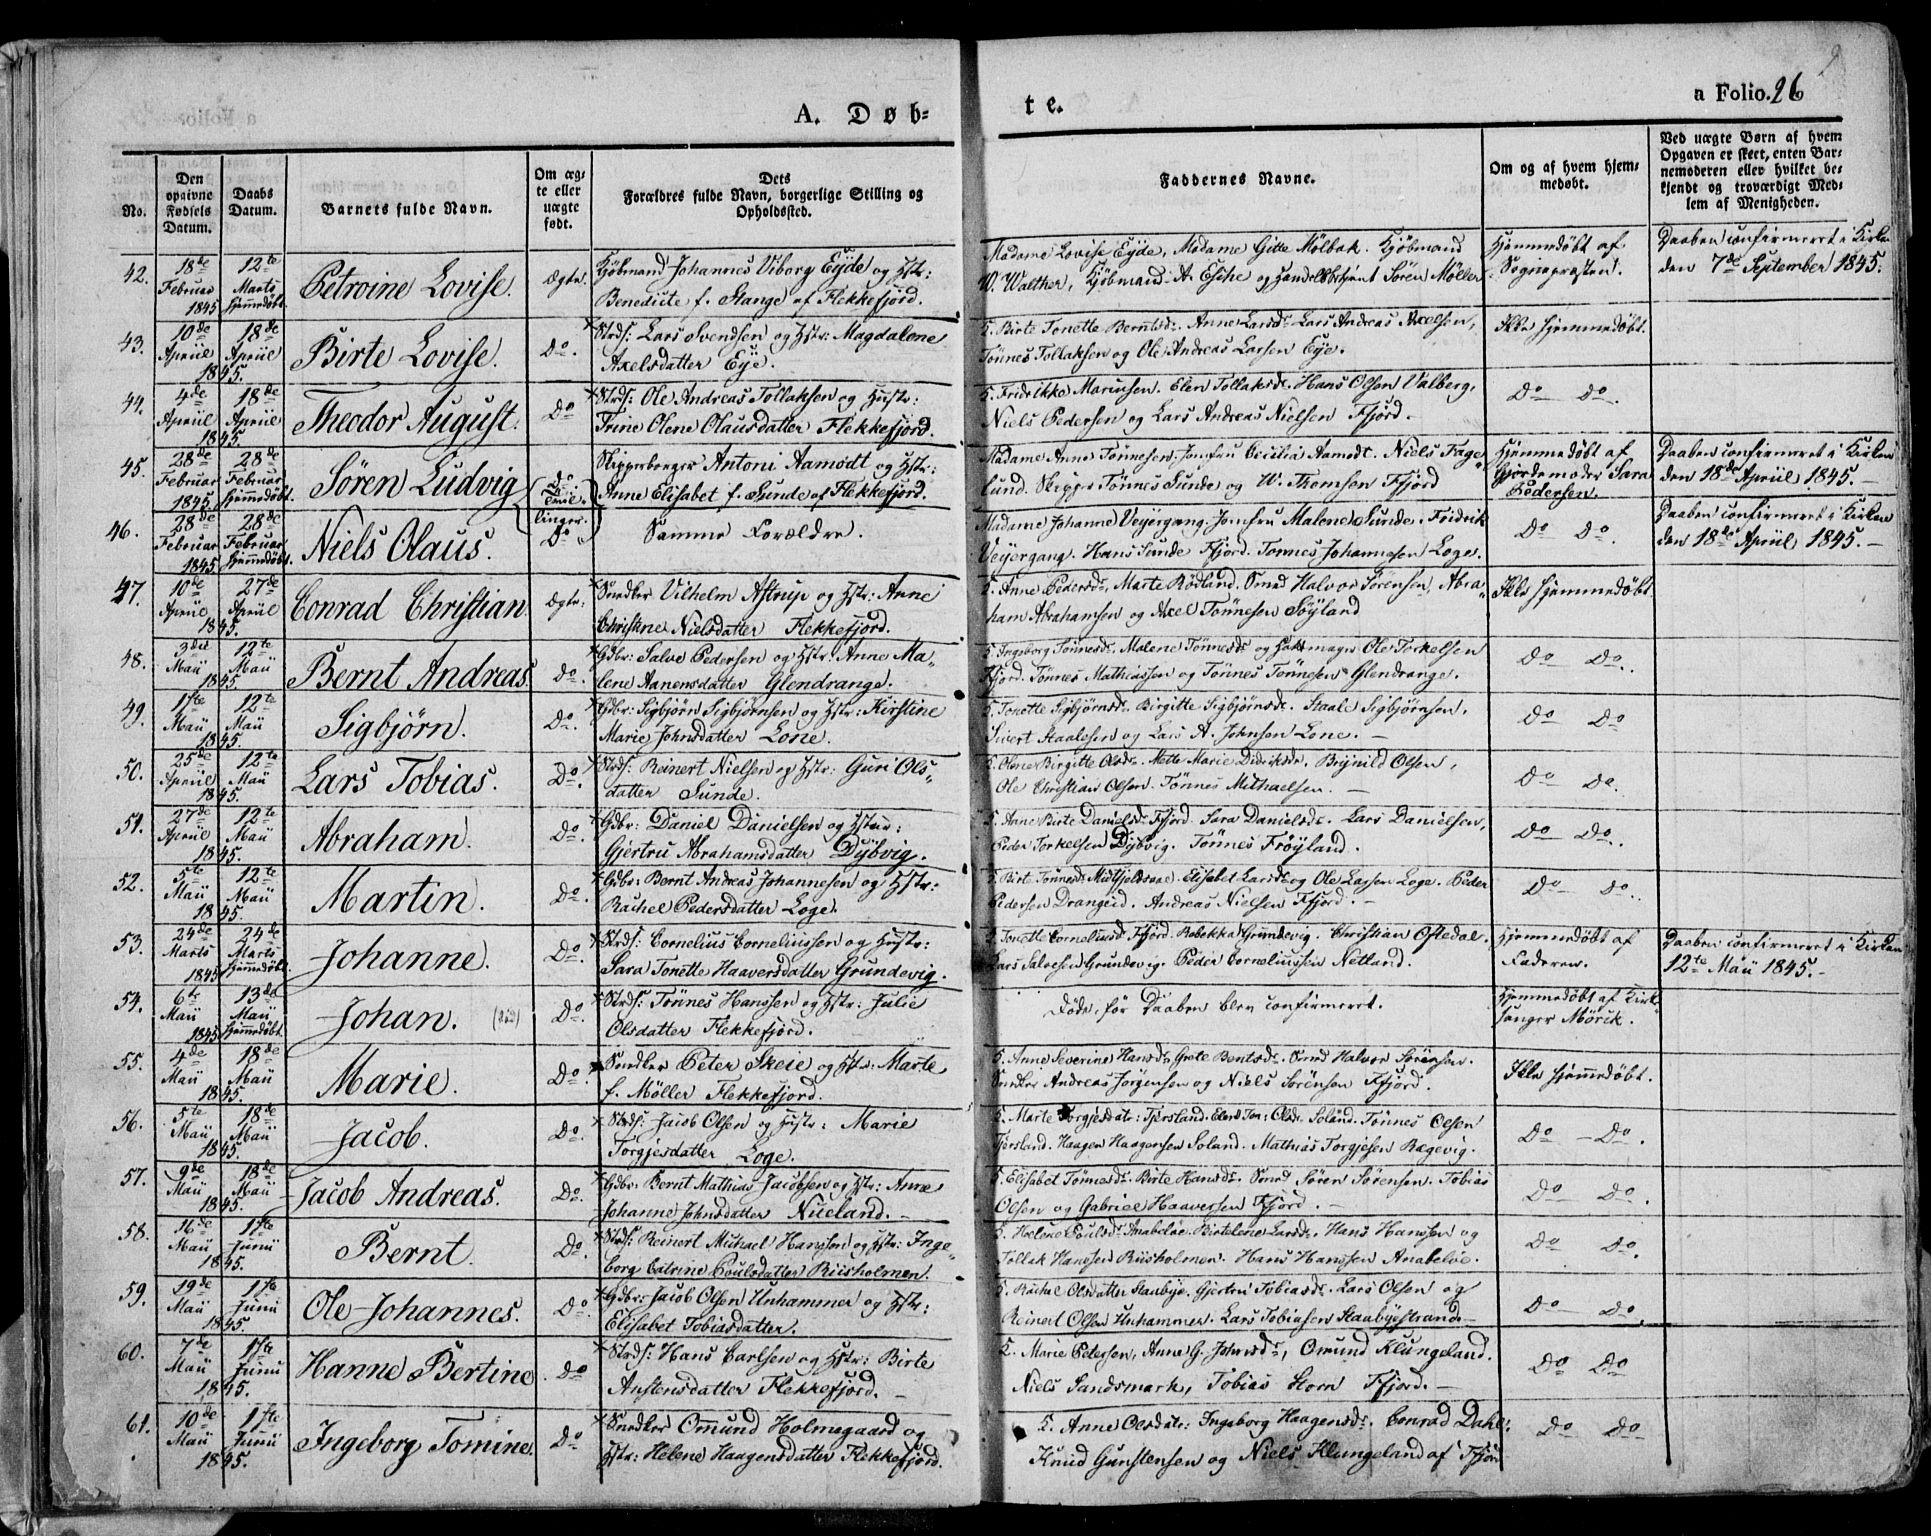 A. Døb-
te.
a Folio. 26
No.
Den opgivne Fødsels Datum.
Daabs Datum.
Barnets fulde Navn.
Om ægte eller uægte født.
Dets Forældres fulde Navn, borgerlige Stilling og Opholdssted.
Faddernes Navne.
Om og af hvem hjemmedøbt.
Ved uægte Børn af hvem Opgaven er skeet, enten Barnemoderen eller hvilket bekjendt og troværdigt Medlem af Menigheden.
42. 18de Februar 1845 12te Marts hjemmedøbt. Petroine Lovise. Ægte.
Kjøbmand Johannes Viborg Eyde og Hstr:
Benedicte f. Stange af Flekkefjord.
Madame Lovise Eyde, Madame Gitte Mølbak. Kjøbmand
W. Walther, Kjøbmand A. Eske og Søren Møller
Hjemmedøbt af Sognepræsten.
Daaben confirmeret i Kirken den 7de September 1845.
43. 10de Apriil 1845. 18de Apriil Birte Lovise. Do.
Strds: Lars Svendsen og Hstr: Magdalene
Axelsdatter Eye.
5. Birte Tonette Berntsdr. Anne Larsdr. Lars Andreas Axelsen,
Tönnes Tollaksen og Ole Andreas Larsen Eye.
Ikke hjemmedøbt.
44. 4de Apriil 1845. 18de Apriil Theodor August. Do
Strds: Ole Andreas Tollaksen og Hustr:
Trine Olene Olausdatter Flekkefjord.
5. Fridrikke Mariusen. Elen Tollaksdr. Hans Olsen Valberg,
Niels Pedersen og Lars Andreas Nielsen Fjord.
Do Do.
45. 28de Februar 1845. 28de Februar hjemmedøbt. Søren Ludvig Do.
Skipperborger Antoni Aamodt og Hstr:
Anne Elisabet f. Sunde af Flekkefjord.
Madame Anne Tönnesen. Jomfru Cicilia Aamodt. Niels Fage-
lund. Skipper Tönnes Sunde og W. Thomsen Fjord
Hjemmedøbt af Gjordemoder Sara Pedersen.
Daaben confirmeret i Kirken den 18de Apriil 1845. -
46. 28de Februar 1845 28de Februar hjemmedøbt. Niels Olaus. Tvillinger. Do
Samme Forældre.
Madame Johanne Veyergang. Jomfru Malene Sunde. Fridrik
Veyergang. Hans Sunde Fjord. Tonnes Johannesen Loge.
Do Do.
Daaben confirmeret i Kirken den 18de Apriil 1845. -
47. 10de Apriil 1845. 27de Apriil Conrad Christian Ægte.
Snedker Vilhelm Astrup og Hstr: Anne
Christine Nielsdatter Flekkefjord.
5. Anne Pedersdr. Marte Rødland. Smed Halvor Sörensen, Abra-
ham Abrahamsen og Axel Tönnesen Söyland
Ikke hjemmedøbt.
48. 3die Maii 1845. 12te Maii Bernt Andreas. Do.
Gdbr: Salve Pedersen og Hstr: Anne Ma-
lene Aanensdatter Glendrange.
5. Ingeborg Tönnesdr. Malene Tönnesdr. og Hattmager Ole Torkelsen
Fjord. Tönnes Mathiassen og Tönnes Tönnesen Glendrange.
Do Do.
49. 1ste Maii 1845. 12te Maii Sigbjørn. Do.
Gdbr: Sigbjørn Sigbjørnsen og Hstr: Kirstine
Marie Johnsdatter Lone.
5. Tonette Sigbjørnsdr. Birgitte Sigbjørnsdr. Staale Sigbjørnsen.
Sivert Staalesen og Lars A. Johnsen Lone. -
Do Do
50. 25de Apriil 1845. 12te Maii Lars Tobias. Do.
Strds: Reinert Nielsen og Hstr: Guri Ols-
datter Sunde.
5. Olene Birgitte Olsdr. Mette Marie Didriksdr. Brynild Olsen,
Ole Christian Olsen. Tönnes Mithaelsen. -
Do Do.
51. 27de Apriil 1845. 12te Maii Abraham. Do.
Gdbr: Daniel Danielsen og Hstr:
Gjertru Abrahamsdatter Dybvig.
5. Anne Birte Danielsdr. Fjord. Sara Danielsdr. Lars Danielsen,
Peder Torkelsen Dybvig. Tönnes Fröyland.
Do Do.
52. 5te Maii 1845. 12te Maii Martin. Do.
Gdbr: Bernt Andreas Johannesen og Hstr:
Rachel Pedersdatter Loge.
5. Birte Tönnesdr. Midtfjeldsaae. Elisabet Larsdr. og Ole Larsen Loge. Peder
Pedersen Drangeid. Andreas Nielsen Fjord. -
Do Do.
53. 24de Marts 1845 24de Marts hjemmedøbt. Johanne. Do.
Strds: Cornelius Corneliussen og Hustr:
Sara Tonette Haaversdatter Grundevig.
5. Tonette Corneliusdr. Fjord. Rebekka Grundevig. Christian Oftedal.
Lars Salvesen Grundevig. Peder Corneliussen Netland.
Hjemmedøbt af Faderen.
Daaben confirmeret i Kirken 12te Maii 1845. -
54. 6te Maii 1845 13de Maii hjemmedøbt. Johan. Do.
Strds: Tönnes Hanssen og Hstr: Julie
Olsdatter Flekkefjord.
Døde, før Daaben blev confirmeret.
Hjemmedøbt af Kirkesanger Mörik.
55. 4de Maii 1845. 18de Maii Marie. Do.
Snedker Peter Skeie og Hstr: Marte
f. Möller Flekkefjord.
5. Anne Severine Hansdr. Grete Bentsdr. Smed Halvor Sörensen.
Snedker Andreas Jörgensen og Niels Sörensen Fjord.
Ikke hjemmedøbt.
56. 5te Maii 1845. 18de Maii Jacob. Do.
Strds: Jacob Olsen og Hustr: Marie
Torgjesdatter Loge.
5. Marte Torgjesdatr: Tjersland. Elen Ton: Olsdr. Soland. Tönnes Olsen
Tjersland. Haagen Haagensen Soland. Mathias Torgjesen Rægevig.
Do - Do.
57. 9de Maii 1845. 18de Maii Jacob Andreas. Do.
Gdbr: Bernt Mathias Jacobsen og Hstr: Anne
Johanne Johnsdatter Nueland. -
5. Elisabet Tönnesdr. Birte Hansdr. Smed Sören Sörensen. Tobias
Olsen og Gabriel Haaversen Fjord. -
Do Do.
58. 16de Maii 1845. 1ste Junii Bernt. Do.
Strds: Reinert Michael Hanssen og Hstr: Inge-
borg Catrine Poulsdatter Riisholmen.
5. Helene Poulsdr. Anabeløe. Birtelene Larsdr. Hans Hanssen og
Tollak Hanssen Riisholmen. Hans Hanssen Anabeløe.
Do Do.
59. 19de Maii 1845. 1ste Junii Ole Johannes. Do.
Gdbr: Jacob Olsen Unhammer og Hstr:
Elisabet Tobiasdatter.
5. Rachel Olsdatter Staubye. Gjertru Tobiasdr. Lars Olsen og
Reinert Olsen Unhammer. Lars Tobiasen Staabyestrand. -
Do Do.
60. 7de Maii 1845. 1ste Junii Hanne Bertine Do
Strds: Hans Carlsen og Hstr: Birte
Anstensdatter Flekkefjord. -
5. Marie Petersen, Anne G. Johnsdr., Omund Klungeland.
Niels Sandsmark, Tobias Storn Fjord. -
Do Do
61. 10de Maii 1845. 1ste Junii Ingeborg Tomine. Do
Snedker Omund Holmegaard og
Hstr: Helene Haagensdatter Flekkefjord.
5. Anne Olsdatr: Ingeborg Haagensdr. Conrad Dahl:
Knud Gunstensen og Niels Klungeland af Fjord
Do Do